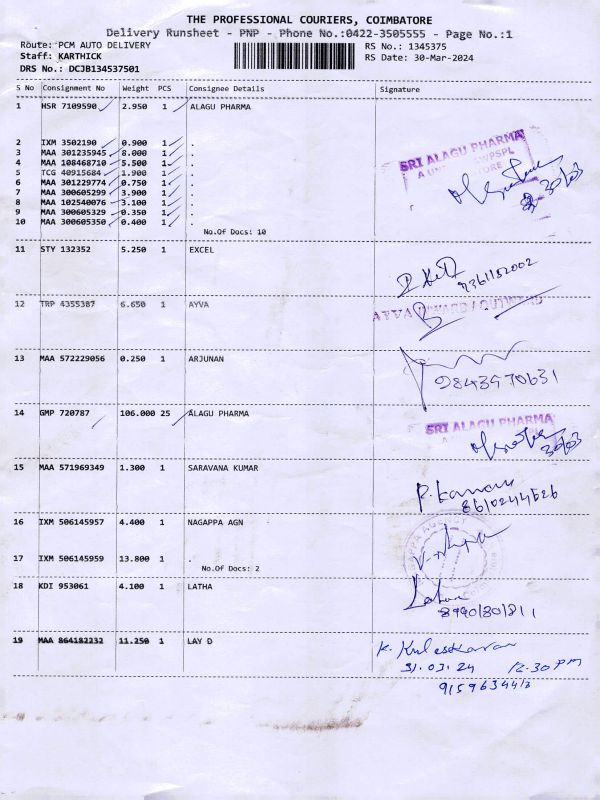 THE PROFESSIONAL COURIERS, COIMBATORE
Delivery Runsheet - PNP - Phone No.:0422-3505555 - Page No.:1
Route: PCM AUTO DELIVERY RS No.: 1345375
Staff: KARTHICK RS Date: 30-Mar-2024
DRS No.: DCJB134537501
S No Consignment No Weight PCS Consignee Details Signature
1 HSR 7109590 2.950 1 ALAGU PHARMA
2 IXM 3502190 0.900 1 .
3 MAA 301235945 8.000 1 .
4 MAA 108468710 5.500 1 .
5 TCG 40915684 1.900 1 .
6 MAA 301229774 0.750 1 .
7 MAA 300605299 3.900 1 .
8 MAA 102540076 3.100 1 .
9 MAA 300605329 0.350 1 .
10 MAA 300605350 0.400 1 .
No.Of Docs: 10
SRI ALAGU PHARMA
30/03
11 STY 132352 5.250 1 EXCEL
9361152002
12 TRP 4355387 6.650 1 AYVA
13 MAA 572229056 0.250 1 ARJUNAN
9843970631
14 GMP 720787 106.000 25 ALAGU PHARMA
SRI ALAGU PHARMA
30/03
15 MAA 571969349 1.300 1 SARAVANA KUMAR
8610244626
16 IXM 506145957 4.400 1 NAGAPPA AGN
17 IXM 506145959 13.800 1 .
No.Of Docs: 2
18 KDI 953061 4.100 1 LATHA
Latha
19 MAA 864182232 11.250 1 LAY D
31.03.24 12.30 PM